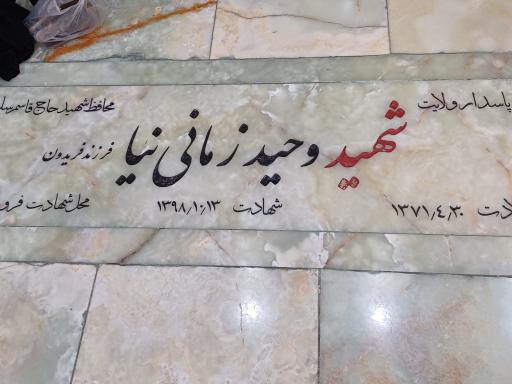 پاسدار ولایت محافظ شهید حاج قاسم
شهید وحید زمانی نیا فرزند فریدون
۱۳۷۱٫۴٫۳۰ شهادت ۱۳۹۸٫۱۰٫۱۳ محل شهادت